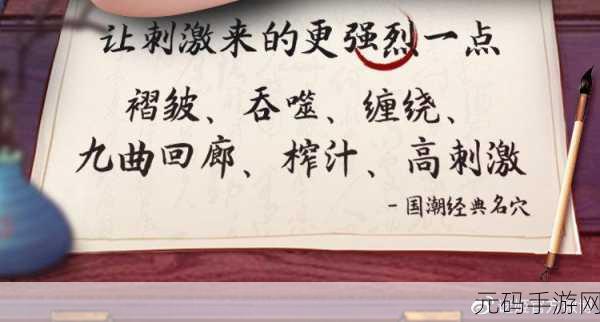 让刺激来的更强烈一点
褶皱、吞噬、缠绕、
九曲回廊、榨汁、高刺激
-国潮经典名穴
元码手游网